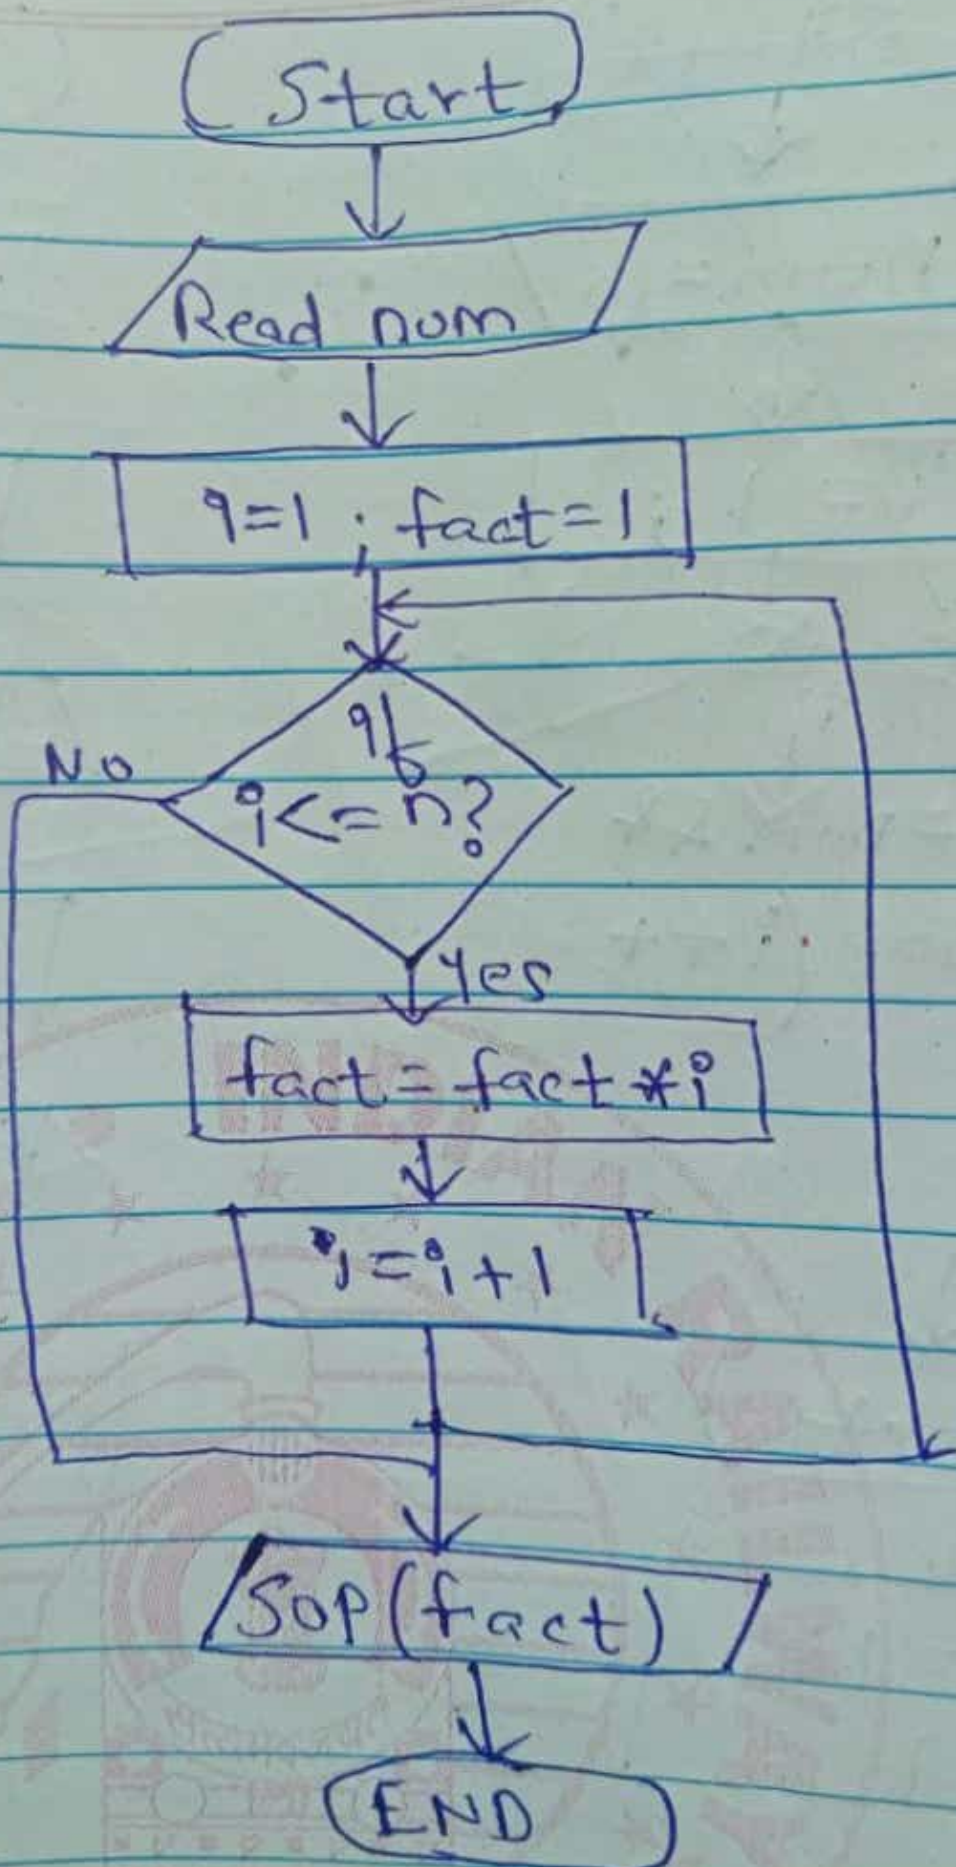 Start
Read num
i=1 ; fact=1
If
i<=n?
No
Yes
fact = fact *i
i=i+1
Sop(fact)
END